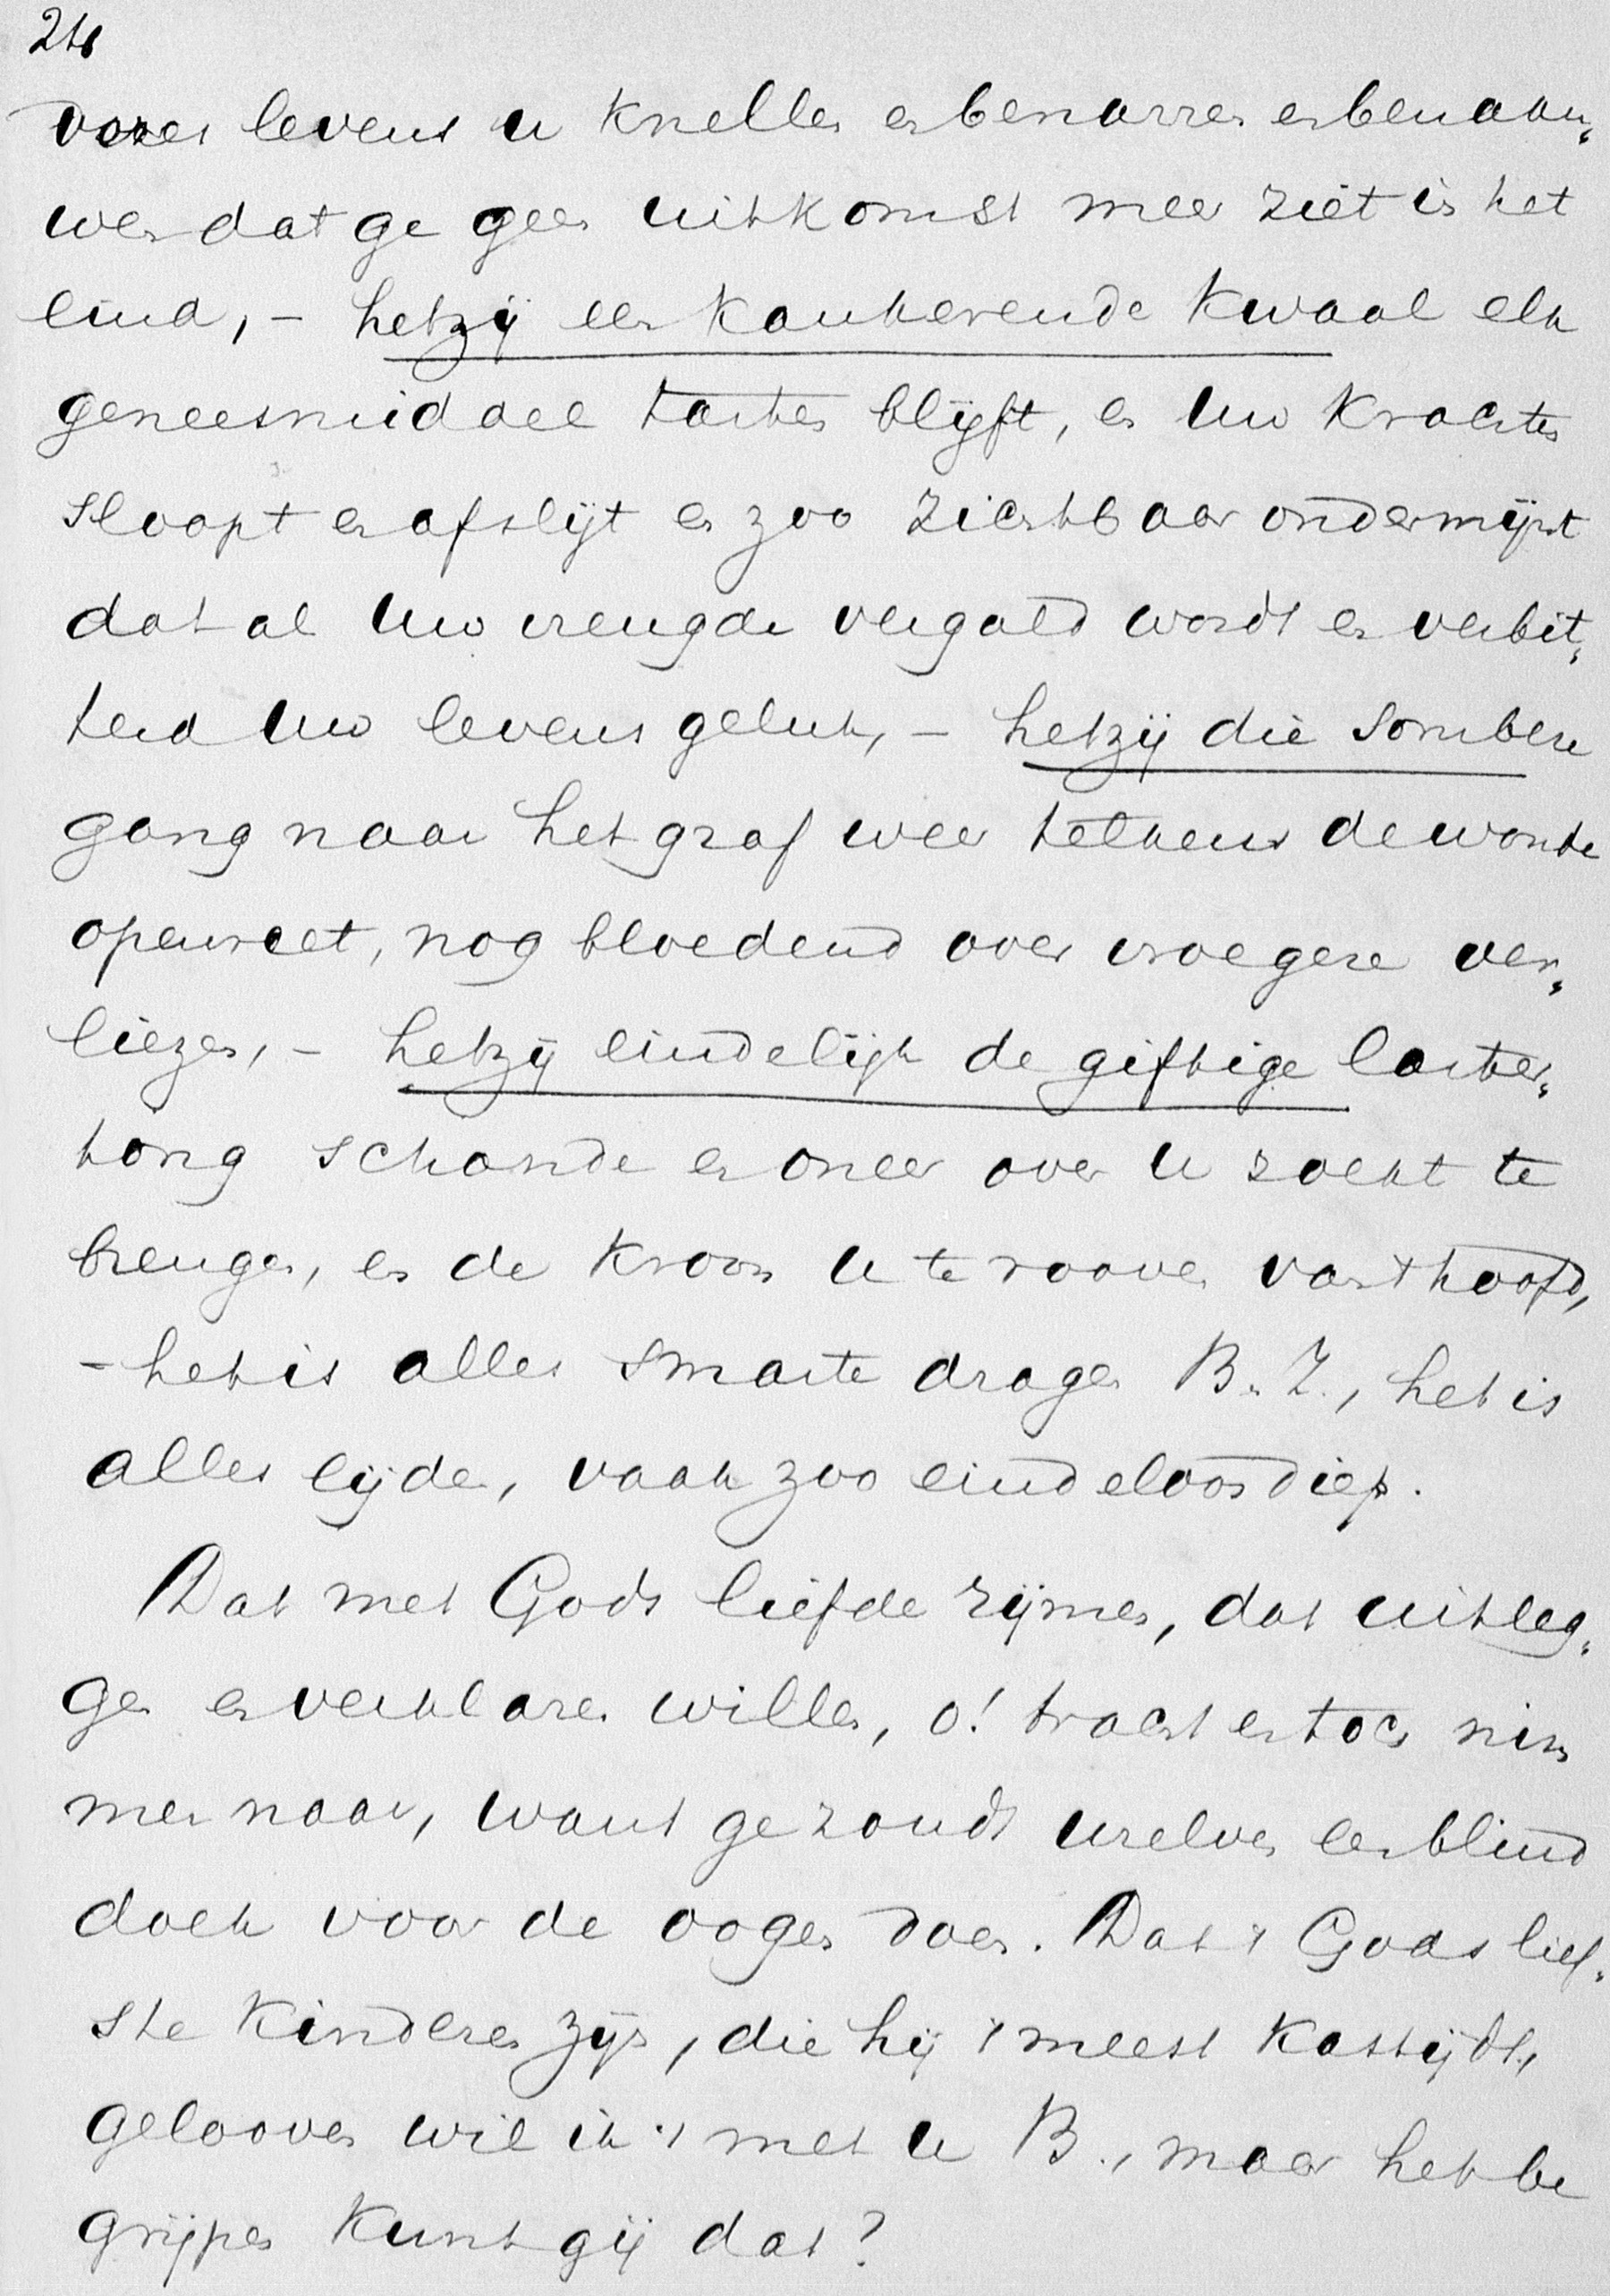 24
vozes levens u knellen en benarren en benaau„
wen dat ge geen uitkomst meer ziet in het
eind, – hetzij een kankerende kwaal elk
geneesmiddel tarten blijft, en uw krachten
sloopt en afslijt en zoo zichtbaar ondermijnt
dat al uw vreugde vergald wordt en verbit„
terd uw levensgeluk, – hetzij die sombere
gang naar het graf weer telkens de wonde
openreet, nog bloedend over vroegere ver„
liezen, – hetzij eindelijk de giftige laster„
tong schande en oneer over u zoekt te
brengen, en de kroon u te rooven van 't hoofd,
– het is alles smarte dragen B. Z., het is
alles lijden, vaak zoo eindeloos diep.
Dat met Gods liefde rijmen, dat uitleg„
gen en verklaren willen, o! tracht er toch nim
mer naar, want ge zoudt uzelven een blind
doek voor de oogen doen. Dat 't Gods lief„
ste kinderen zijn, die hij 't meest kastijdt,
gelooven wil ik 't met u B., maar het be
grijpen kunt gij dat?